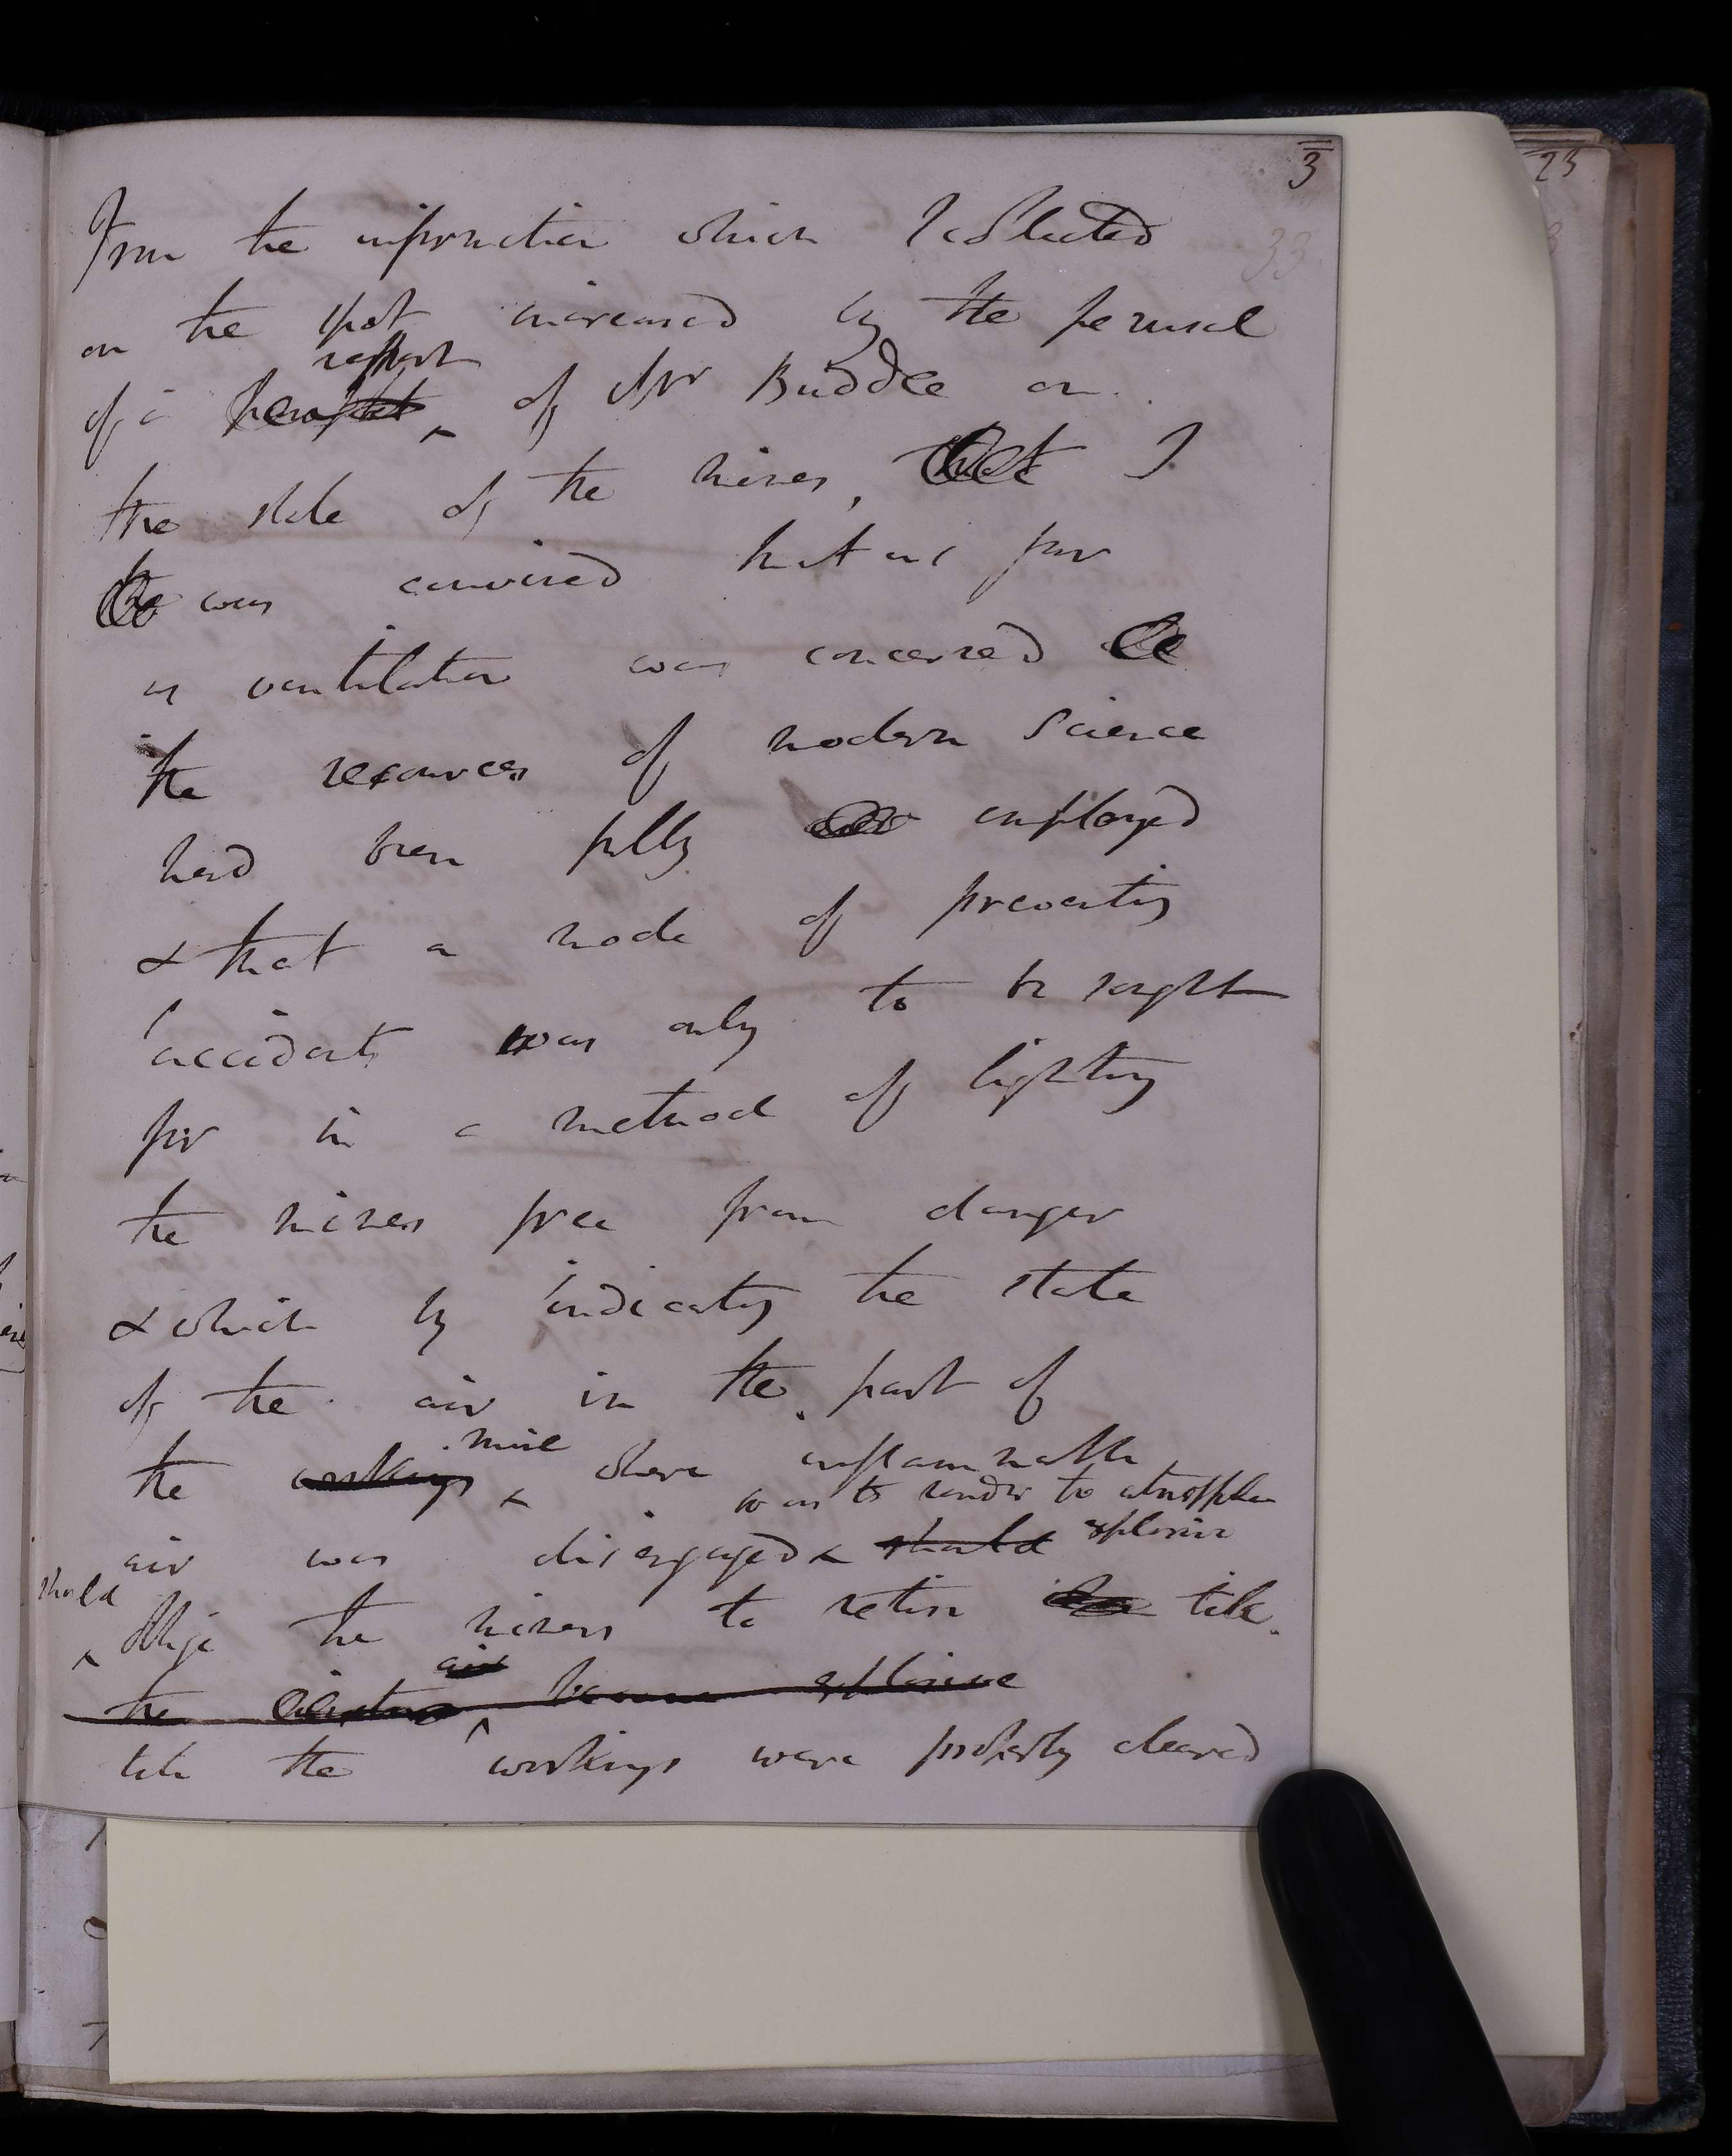 3
33
23
From the information which I collected
on the spot increased by the perusal
report
of a pamphlet of Mr Buddle on
the state of the mines, that I
was convinced that as far
as ventilation was concerned
the resources of modern science
had been fully employed
& that a mode of preventing
accidents was only to be sought
for in a method of lighting
the mines free from danger
& which by indicating the state
of the air in the part of
mine
the workings where inflammable
so as to render the atmosphere
air was disengaged should explosive
should
oblige the miners to retire till
air
the became explosive
till the workings were properly cleared